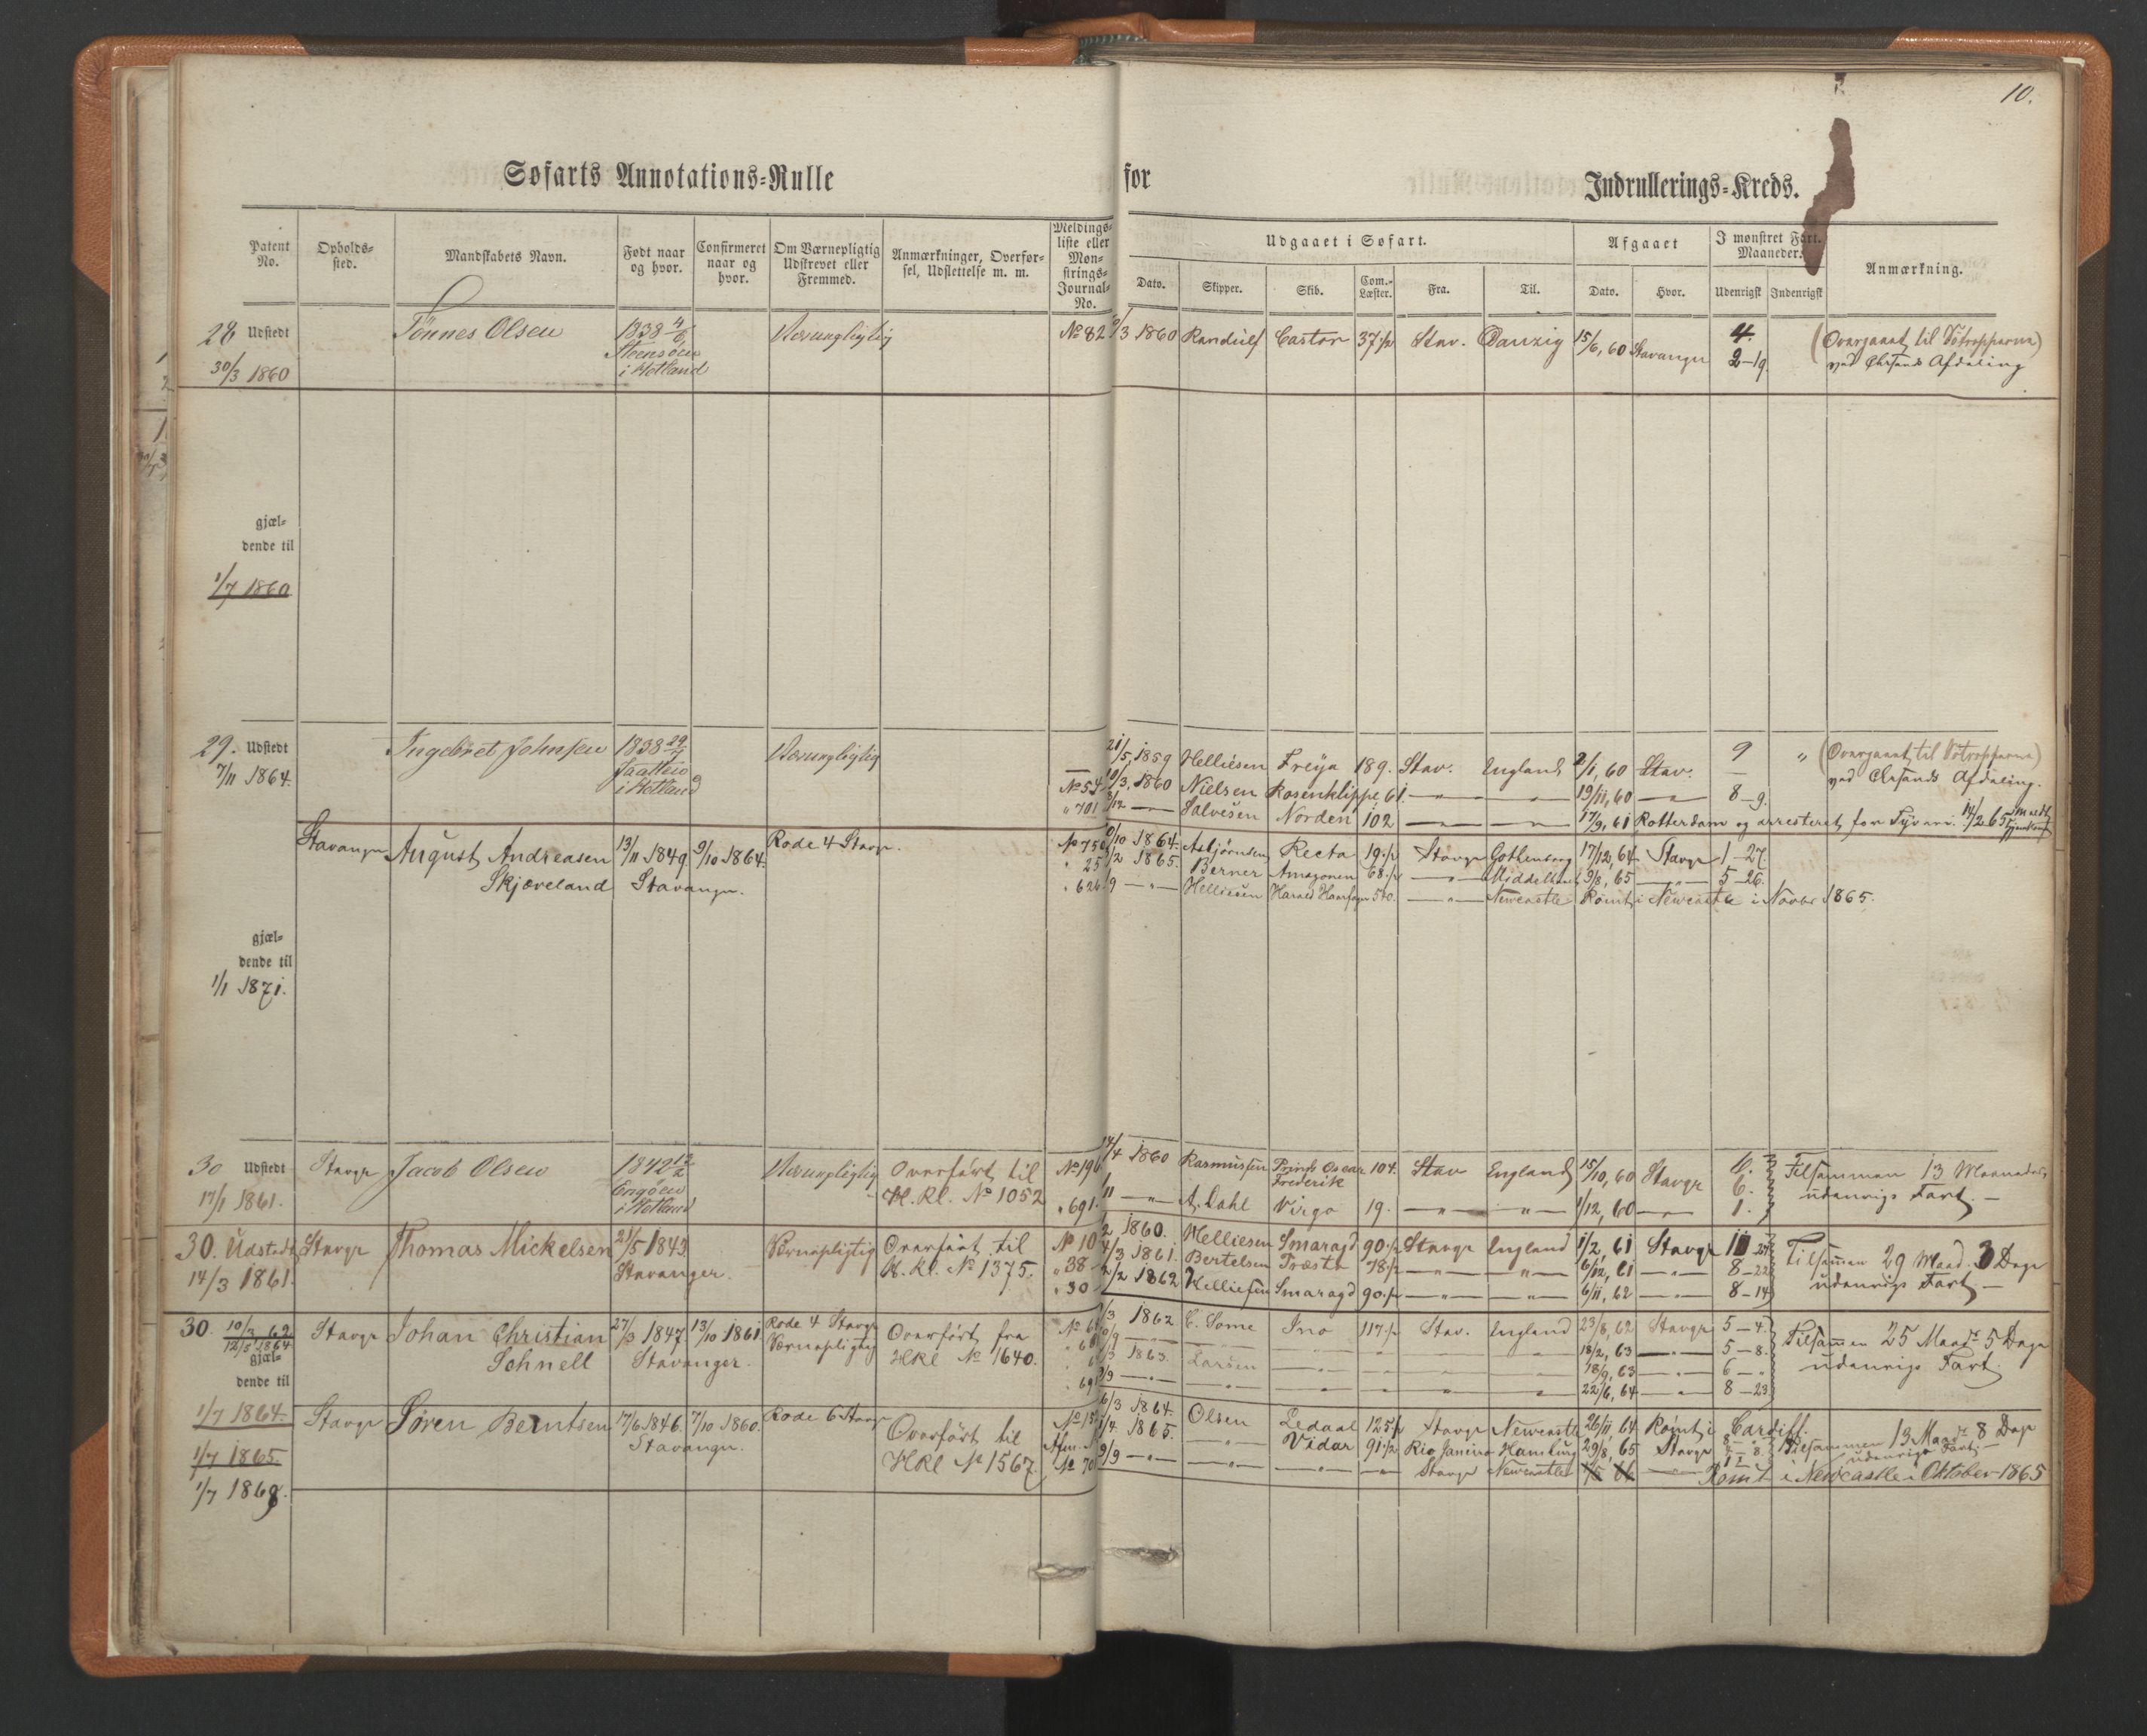 10.
Søfarts Annotations-Rulle for Indrullerings-Kreds.
Patent No. Opholds-sted. Mandskabets Navn. Født naar og hvor. Confirmeret naar og hvor. Om Værnepligtig Udskrevet eller Fremmed. Anmærkninger, Overfør-sel, Udslettelse m. m. Meldings-liste eller Mønstrings-Journal-No.
Udgaaet i Søfart. Afgaaet I mønstret Fart. Maaneder. Anmærkning.
Dato. Skipper. Skib. Com.-Læster. Fra. Til. Dato. Hvor. Udenrigsk Indenrigsk
28 Udstedt Tönnes Olsen 1838 4/6 Værnepligtig No 82 /3 1860 Randulf Castor 37 Stav. Danzig 15/6, 60 Stavanger 4.
30/3 1860 i Hetland 2-19.
(Overgaaet til Søtropperne) ved Chrsands Afdeling
gjæl-
dende til
1/7 1860
29. Udstedt Ingebret Johnsen 1838 29/7 Værnepligtig 21/5, 1859 Helliesen Freya 189. Stav. England 2/1, 60 Stav. 9 " (Overgaaet til Søtropperne)
7/11 1864. i Hetland No 54 10/3, 1860 Nielsen Rosenklippe 61. —"— —"— 19/11, 60 —"— 8-9. ved Chrsands Afdeling.
" 701 3/12 —"— Salvesen Norden 102 —"— —"— 17/9, 61 Rotterdam og arresteret for Tyveri.
Stavanger August Andreasen 13/11 1849 9/10 1864. Rode 4 Stavgr. No 756 /10 1864. Asbjørnsen Recta 19 Stavgr Gothenborg 17/12, 64 Stavgr 1-27.
Skjæveland Stavanger. " 25 /2 1865. Berner Amazonen 68 —"— 9/8, 65 —"— 5-26.
" 626 9 —"— Helliesen Harald Haarfager 540. —"— Newcastle Rømt i Newcastle i Novbr 1865.
gjæl-
dende til
1/1 1871.
30 Udstedt Stavgr Jacob Olsen 1842 Værnepligtig Overført til No 196 14/4 1860 Rasmussen Prinds Oscar Frederik 104. Stav England 15/10, 60 Stavgr 6. Tilsammen 13 Maaneder
17/1 1861. Engøen i Hetland H. Rl. No 1052 " 691. /11 —"— A. Dahl Virgo 19. —"— —"— 1/12, 60 —"— 1. udenrigs Fart. —
30. Udstedt Stavgr Thomas Mickelsen 21/5 1843 Værnepligtig Overført til No 10 /2 1860. Helliesen Smaragd 90 Stavgr England 1/2, 61 Stavgr 11 Tilsammen 29 Maad. 3 Dage
14/3 1861. Stavanger. H. Rl. No 1375. " 38 4/3 1861. Bertelsen 78 —"— —"— 6/12, 61 —"— 8-22 udenrigs Fart. —
" 30 2/2 1862 Helliesen Smaragd 90 —"— —"— 6/11, 62 —"— 8-14
30. 10/3 62 Stavgr Johan Christian 27/3 1847 13/10 1861 Rode 4 Stavgr Overført fra No 6 /3 1862 C. Some Ino 117 Stav. England 23/8, 62 Stavgr 5-4. Tilsammen 25 Maad. 5 Dage
12/5 1864 Schnell Stavanger. Værnepligtig HRl No 1640. —"— 18/2, 63 —"— 5-8. udenrigs Fart.
gjæl- /3 1863. Larsen —"— 18/9, 63 —"— 6-
dende til " 69 /9 —"— —"— 22/6, 64 —"— 8-23
1/7 1864. Stavgr Søren Berntsen 17/6 1846. 7/10 1860. Rode 6 Stavgr Overført til 6/3 1864. Olsen Ledaal 125 Stavgr Newcastle 26/11, 64 Rømt i Cardiff.
1/7 1865. Stavanger. HRl No 1567 /4 1865. —"— Vidar 91 Rio Janeiro Hamburg 29/8, 65 Stavgr Tilsammen 13 Maad. 8 Dage udenrigs Fart. —
1/7 1868. No 70 9/9 —"— —"— —"— Stavgr Newcastle —"— Rømt i Newcastle i Oktober 1865